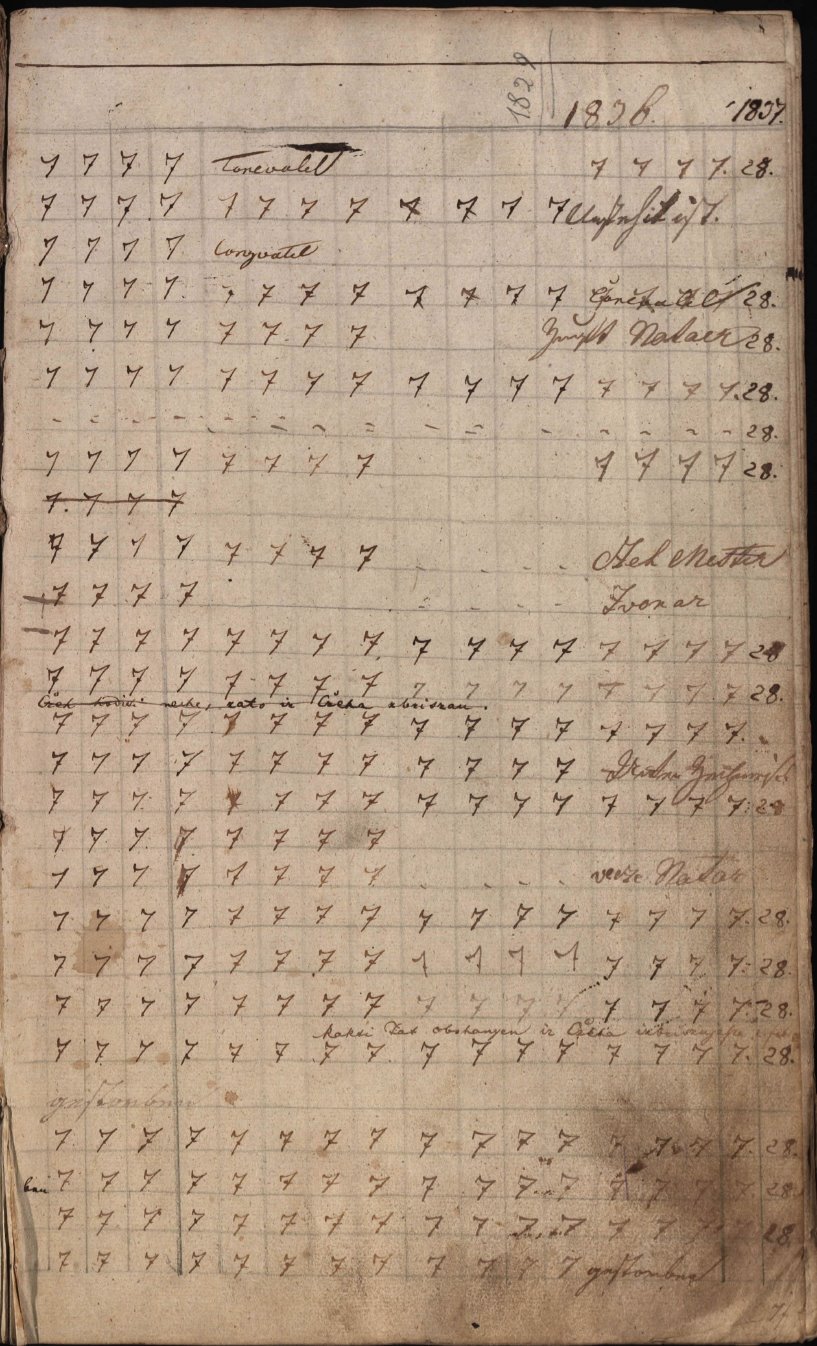 1829 1836. 1837.
7 7 7 7 7 7 7 7. 28.
7 7 7 7 7 7 7 7 7 7 7 7
7 7 7 7
7 7 7 7 7 7 7 7 7 7 7 7 28.
7 7 7 7 7 7 7 7 Notaer 28.
7 7 7 7 7 7 7 7 7 7 7 7 7 7 7 7. 28.
- - - - - - - - - - - - - - - 28.
7 7 7 7 7 7 7 7 7 7 7 7 28.
7. 7 7 7
7 7 7 7 7 7 7 7 - - - - Czeh Mester
7 7 7 7 - - - - Zvonar
7 7 7 7 7 7 7 7 7 7 7 7 7 7 7 7 28
7 7 7 7 7 7 7 7 7 7 7 7 7 7 7 7 28.
neche, zato iz Czeha zbriszan.
7 7 7 7 7 7 7 7 7 7 7 7 7 7 7 7.
7 7 7 7 7 7 7 7 7 7 7 7
7 7 7 7 7 7 7 7 7 7 7 7 7 7 7 7. 28
7 7 7 7 7 7 7 7
7 7 7 7 7 7 7 7 - - - - Notar
7 7 7 7 7 7 7 7 7 7 7 7 7 7 7 7. 28.
7 7 7 7 7 7 7 7 7 7 7 7 7 7 7 7. 28.
7 7 7 7 7 7 7 7 7 7 7 7 7 7 7 7. 28.
kakti Tat obstanyen iz Czeha
7 7 7 7 7 7 7 7 7 7 7 7 7 7 7 7. 28.
gestorben
7 7 7 7 7 7 7 7 7 7 7 7 7 7 7 7. 28.
7 7 7 7 7 7 7 7 7 7 7 7 7 7 7 7 28.
7 7 7 7 7 7 7 7 7 7 7 7 7 7 7 7 28
7 7 7 7 7 7 7 7 7 7 7 7 gestorben